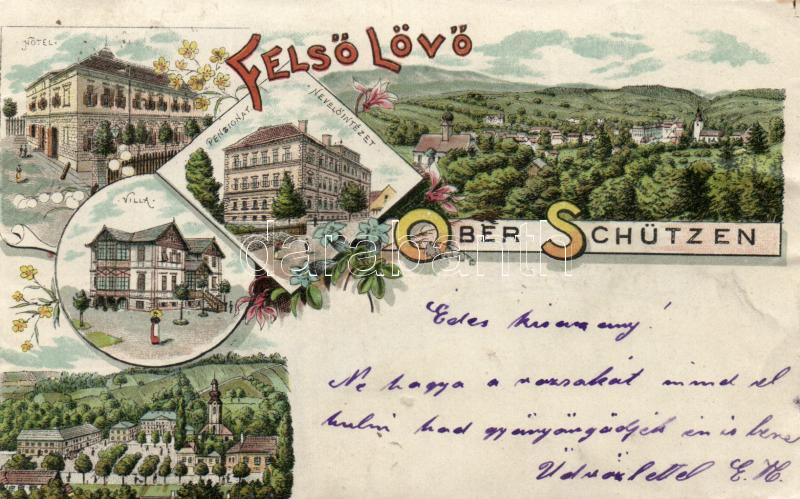 HOTEL.
FELSŐ LÖVŐ
PENSIONAT
NEVELŐINTÉZET
VILLA
OBER SCHÜTZEN
darabanth
Édes kisanyám!
Ne hagya a rozsákat mind el
hulni had gyönyörködjék én is
Üdvözlettel E. H.